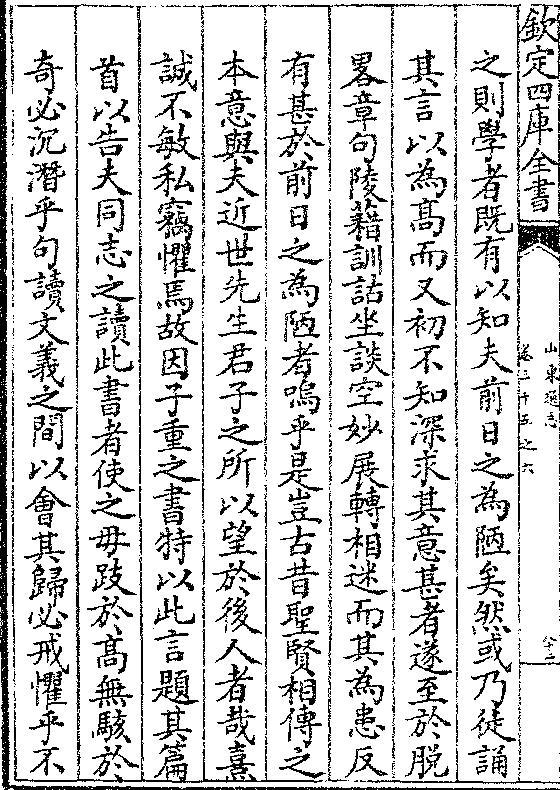 欽定四庫全書
山東通志
卷三十五之六
之則學者既有以知夫前日之為陋矣然或乃徒誦
其言以為髙而又初不知深求其意甚者遂至於脱
畧章句陵藉訓詁坐談空妙展轉相迷而其為患反
有甚於前日之為陋者嗚乎是豈古昔聖賢相傳之
本意與夫近世先生君子之所以望於後人者哉熹
誠不敏私竊懼焉故因子重之書特以此言題其篇
首以告夫同志之讀此書者使之毋跂於髙無駭於
奇必沉潛乎句讀文義之間以會其歸必戒懼乎不